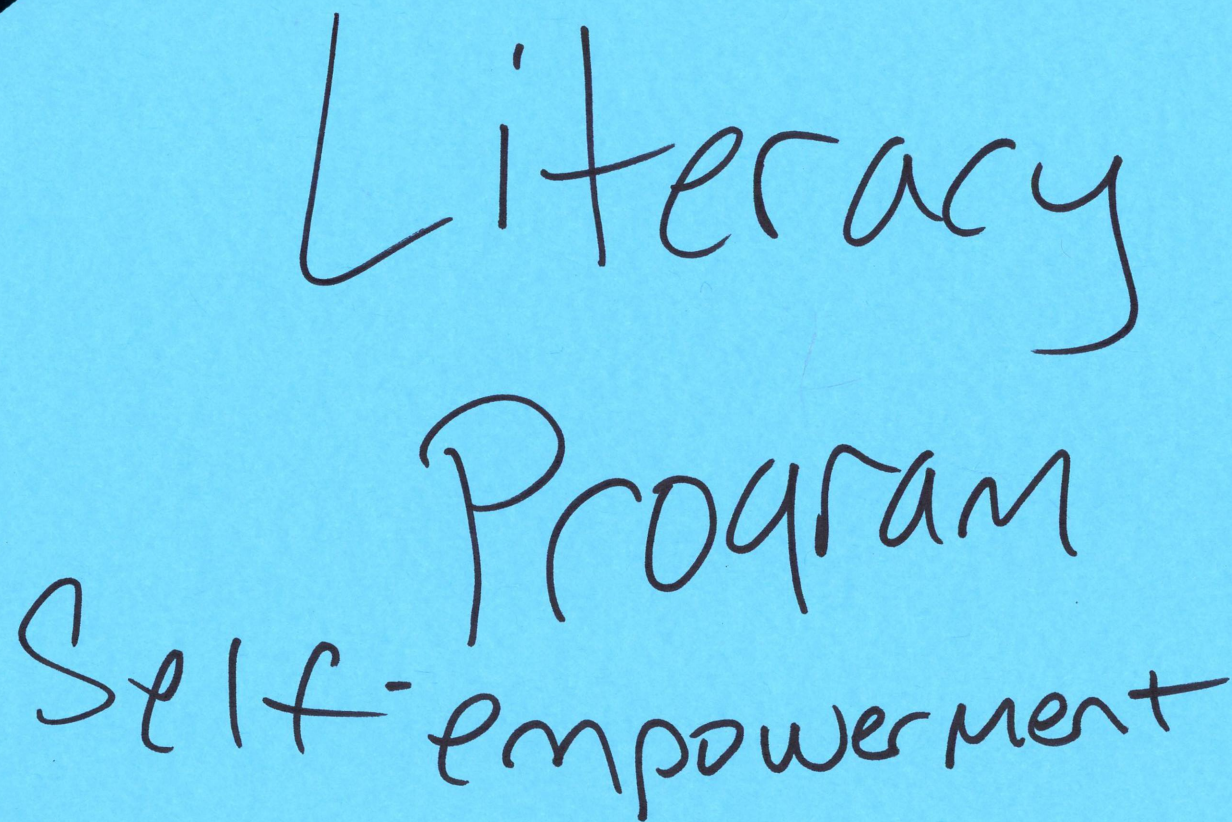 Literacy
Program
Self-empowerment